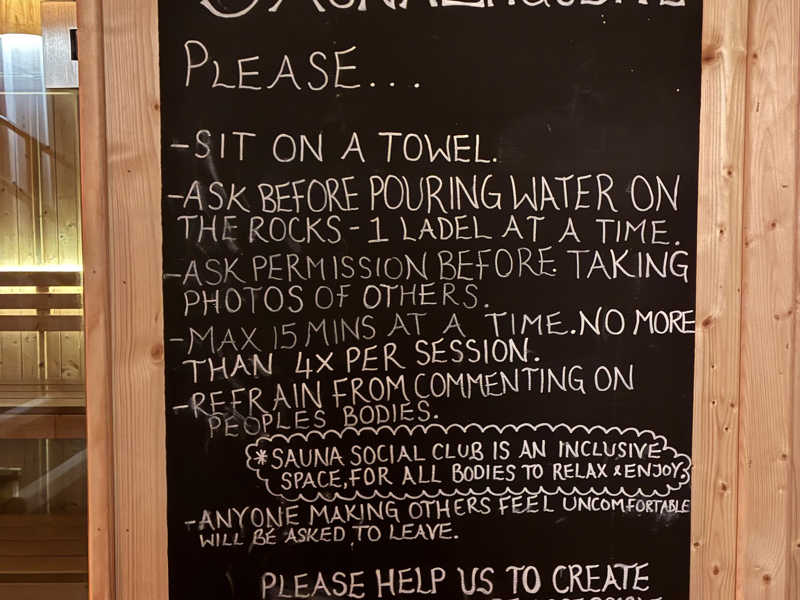 PLEASE...
-SIT ON A TOWEL.
-ASK BEFORE POURING WATER ON
THE ROCKS - 1 LADEL AT A TIME.
-ASK PERMISSION BEFORE TAKING
PHOTOS OF OTHERS.
-MAX 15 MINS AT A TIME. NO MORE
THAN 4X PER SESSION.
-REFRAIN FROM COMMENTING ON
PEOPLES BODIES.
*SAUNA SOCIAL CLUB IS AN INCLUSIVE
SPACE, FOR ALL BODIES TO RELAX & ENJOY.
-ANYONE MAKING OTHERS FEEL UNCOMFORTABLE
WILL BE ASKED TO LEAVE.
PLEASE HELP US TO CREATE